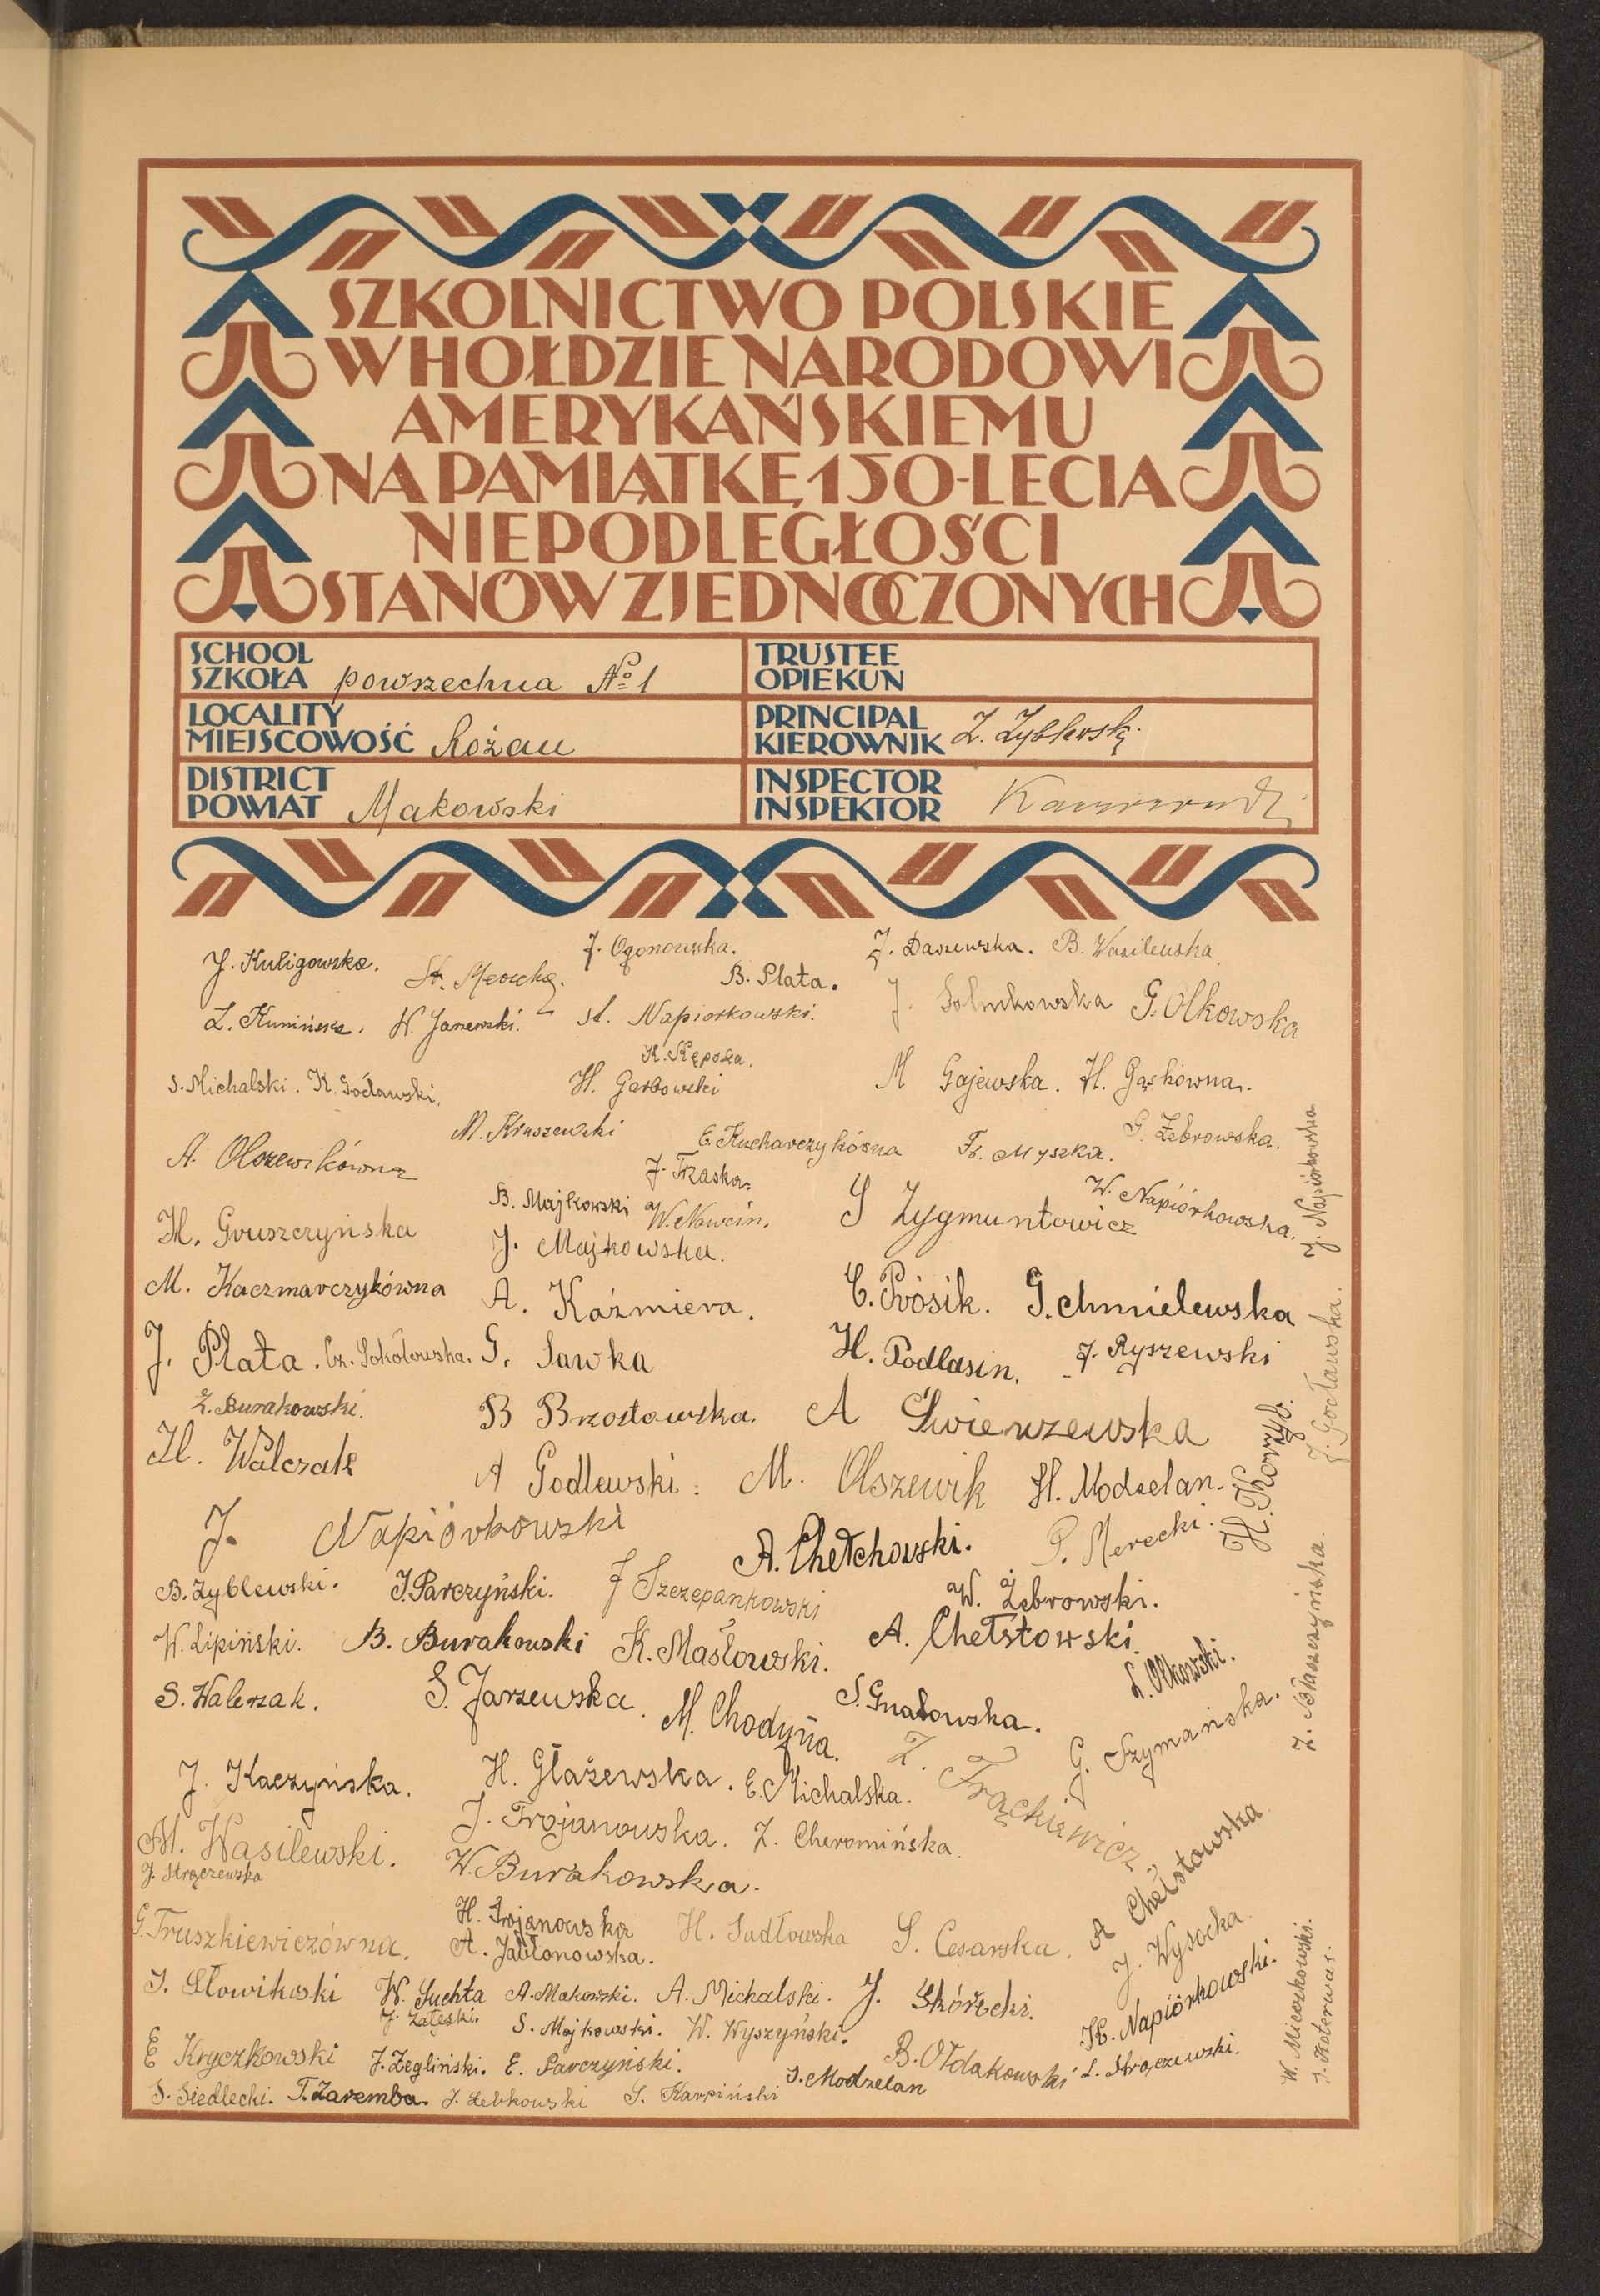 SZKOLNICTWO POLSKIE
W HOŁDZIE NARODOWI
AMERYKAŃSKIEMU
NA PAMIĄTKĘ 150-LECIA
NIEPODLEGŁOŚCI
STANÓW ZJEDNOCZONYCH
SCHOOL
SZKOŁA powszechna № 1
TRUSTEE
OPIEKUN
LOCALITY
MIEJSCOWOŚĆ Rożan
PRINCIPAL
KIEROWNIK Z. Zyblewski
DISTRICT
POWIAT Makowski
INSPECTOR
INSPEKTOR
J. Kuligowska. J. Ogonowska. J. Daszewska. B. Wasilewska.
St. B. Plata. G. Olkowska
Z. Kumińska. W. Janewski. St. Napiorkowski. J.
K. Kępska.
S. Michalski. K. Gocławski. H. Garbowski M Gajewska. H. Gąskówna.
M. Kruszewski E. Kucharczykówna Fr. Myszka. G. Żebrowska.
A. Olszewikówna J. Frzaska.
B. Majkowski W. Nowcin. S Zygmuntowicz W. Napiórkowska. J. Napiórkowska
H. Gruszczyńska J. Majkowska.
M. Kaczmarczykówna A. Kaźmiera. C. Prósik. G. Chmielewska
J. Plata. Cz. Sokołowska. G. Sawka H. Podlasin. J. Ryszewski J. Gocławska.
Z. Burakowski. B Brzostowska. A Świerzewska
H. Walczak A Godlewski. M. Olszewik H. Modzelan. H. Korzyb.
J. Napiórkowski A. Chełchowski. P. Merecki.
B. Zyblewski. J. Parczyński. J Szczepankowski W. Żebrowski.
W. Lipiński. B. Burakowski K. Masłowski. A. Chełstowski. Z. Błaszczyńska.
S. Walerzak. S. Jarzewska. M. Chodyna. S. Gnatowska. L. Olkowski.
G. Szymańska.
J. Kaczyńska. H. Głażewska. E. Michalska. Z. Frąckiewicz
M. Wasilewski. J. Trojanowska. Z. Cheromińska.
J. Strączewska W. Burakowska. A Chełstowska
G. Truszkiewiczówna. H. Trojanowska H. Sadłowska S. Cesarska. J. Wysocka
A. Jabłonowska.
J. Słowikoski W. Suchta A. Makowski. A. Michalski. J. Skórecki. H. Napiórkowski. W. Mieczkowski.
J. Załęski. S. Majkowski. W. Wyszyński. J. Koterwas.
E Kryczkowski J. Żegliński. E. Parczyński. B. Ołdakowski L. Strączewski.
S. Siedlecki. T. Zaremba. J. Żebkowski S. Karpiński J. Modzelan